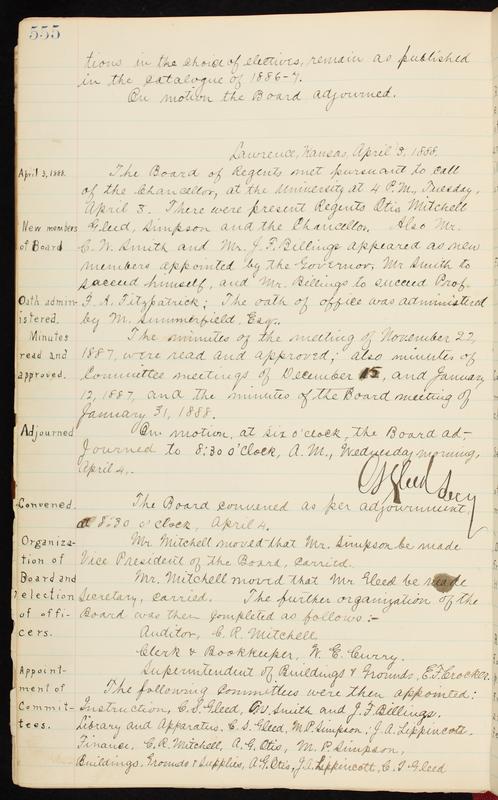 555
tions in the choice of electives, remain as published
in the catalogue of 1886-7.
On motion the Board adjourned.
Lawrence, Kansas, April 3, 1888.
April 3, 1888.
The Board of Regents met pursuant to call
of the Chancellor, at the University at 4 P.M., Tuesday,
April 3. There were present Regents Otis, Mitchell
New members
of Board
Gleed, Simpson and the Chancellor. Also Mr.
C. W. Smith and Mr. J. F. Billings appeared as new
members appointed by the Governor, Mr Smith to
succeed himself, and Mr. Billings to succeed Prof.
Oath admin-
istered.
F. A. Fitzpatrick; The oath of office was administered
by M. Summerfield, Esq.
Minutes
read and
approved.
The minutes of the meeting of November 22,
1887, were read and approved; also minutes of
Committee meetings of December 15, and January
12, 1887, and the minutes of the Board meeting of
January 31, 1888.
Adjourned
On motion, at six o'clock, the Board ad-
journed to 8:30 o'clock, A.M., Wednesday morning,
April 4.
CSGleed Secy
Convened.
The Board convened as per adjournment
at 8:30 o'clock, April 4.
Organiza-
tion of
Board and
election
of offi-
cers.
Mr. Mitchell moved that Mr. Simpson be made
Vice President of the Board, carried.
Mr. Mitchell moved that Mr Gleed be made
Secretary, carried. The further organization of the
Board was then completed as follows:-
Auditor, C. R. Mitchell
Clerk & Bookkeeper, W. E. Curry.
Superintendent of Buildings & Grounds, E. F. Crocker.
Appoint-
ment of
Commit-
tees.
The following committees were then appointed:
Instruction, C. S. Gleed, CW Smith and J. F. Billings.
Library and Apparatus. C. S. Gleed, M. P. Simpson, J. A. Lippincott.
Finance, C. R. Mitchell, A. G. Otis, M. P. Simpson,
Buildings, Grounds & Supplies, A. G. Otis, J. A. Lippincott, C. S. Gleed